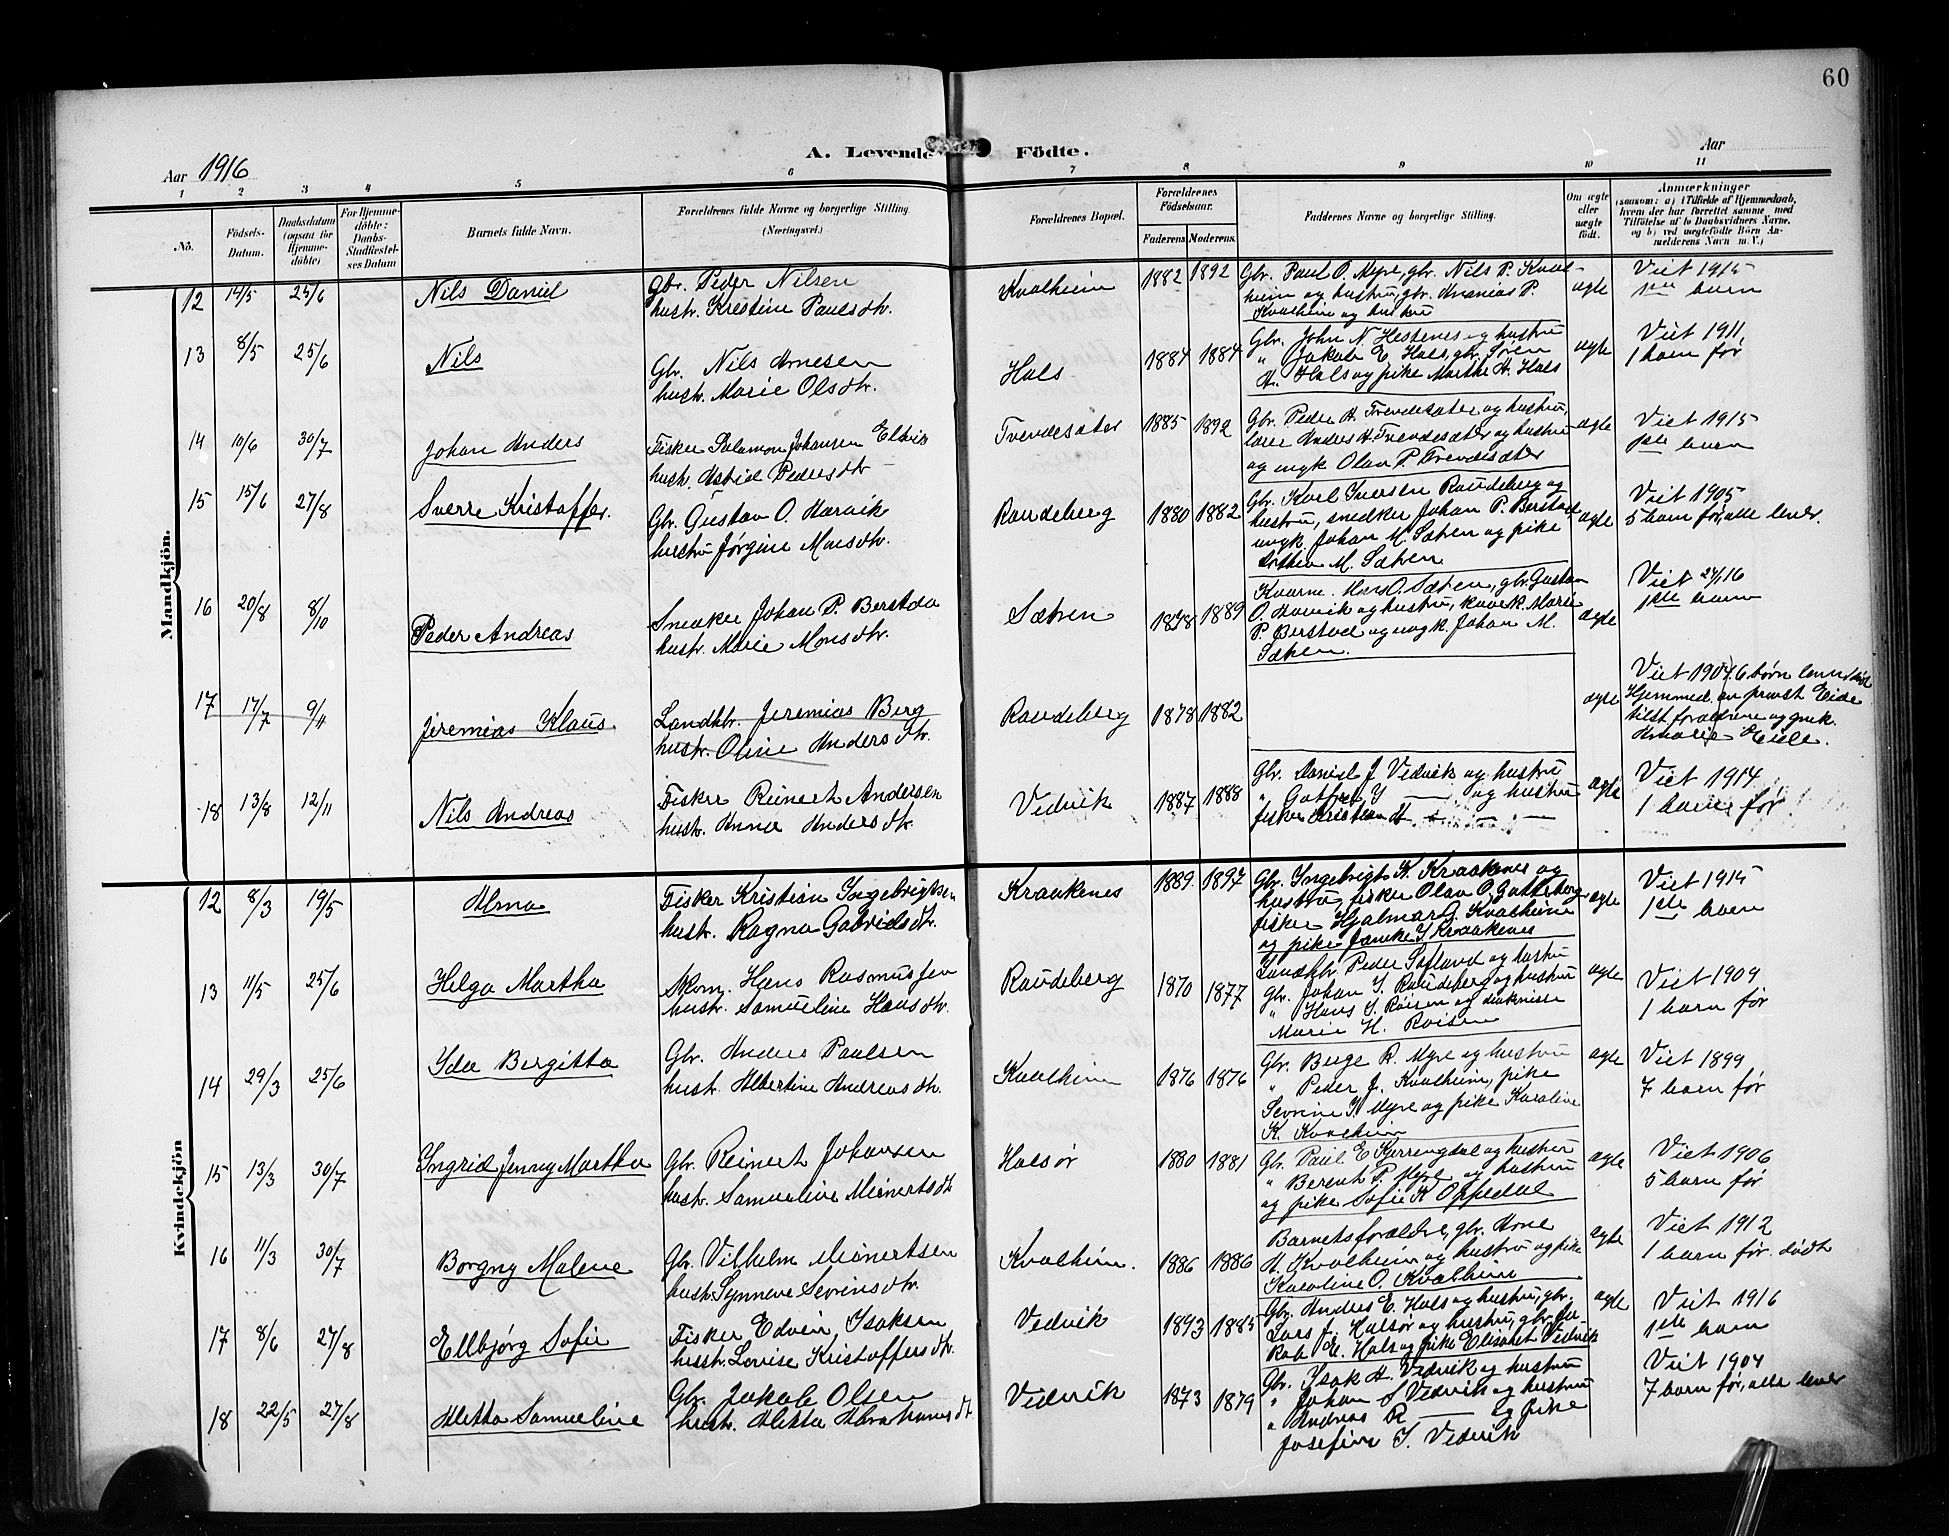 60
Aar 1916
A. Levende Födte.
Aar
1 2 3 4 5 6 7 8 9 10 11
No.
Födsels-Datum.
Daabsdatum (ogsaa for Hjemme-döbte)
For Hjemme-döbte: Daabs-Stadfæstel-ses Datum
Barnets fulde Navn.
Forældrenes fulde Navne og borgerlige Stilling (Næringsvei.)
Forældrenes Bopæl.
Forældrenes Födselsaar.
Faderens Moderens.
Faddernes Navne og borgerlige Stilling.
Om ægte eller uægte födt.
Anmærkninger
(saasom: a) i Tilfælde af Hjemmedaab,
hvem der har forrettet samme med
Tilföielse af to Daabsvidners Navne.
og b) ved uægtefödte Börn An-
melderens Navn m. V.)
Mandkjön.
12 14/5 25/6 Nils Daniel
Gbr. Peder Nilsen
hustr. Kristine Paulsdtr.
Kvalheim 1882 1892
Gbr. Paul O. Myre, gbr. Nils P. Kval-
heim og hustru, gbr. Ananias P.
Kvalheim og hustru
ægte
Viet 1915
1ste barn
13 8/5 25/6 Nils
Gbr. Nils Arnesen
hustr. Marie Olsdtr.
Hals 1884 1884
Gbr. John N. Hestenes og hustru
" Jakob E. Hals, gbr. Søren
H. Hals og pike Marthe H. Hals
ægte
Viet 1911
1 barn før
14 10/6 30/7 Johan Anders
Fisker Salamon Johansen Elvik
hustr. Astrid Pedersdtr
Tvendesæter 1885 1892
Gbr. Peder A. Trevdesæter og hustru,
lærer Anders A. Tvendesæter og hustru
og ungk Olav P. Trevdesæter
ægte
Viet 1915
1ste barn
15 15/6 27/8 Sverre Kristoffer.
Gbr. Gustav O. Harvik
hustru Jørgine Monsdtr.
Raudeberg 1880 1882
Gbr. Karl Iversen Raudeberg og
hustru, snedker Johan P. Berstad
ungk. Johan M. Sætren og pike
Dorthea M. Sætren
ægte
Viet 1905
5 barn før, alle lever.
16 20/8 8/10 Peder Andreas
Snedker Johan P. Berstda
hustr. Marie Monsdtr.
Sætren 1878 1889
Kaarm. Mons O. Sætren, gbr. Gustav
O. Harvik og hustru, kaarek. Marie
P. Berstad og ungk. Johan M.
Sætren.
ægte
Viet 24/1 16
1ste barn
17 17/7 9/11 Jeremias Klaus
Landhb. Jeremias Berg
hustr. Oline Andersdtr.
Raudeberg 1878 1882
ægte
Viet 1904 6 børn
Hjemmed. av provst Eide
tilst. foraldrene og
18 13/8 12/11 Nils Andreas
Fisker Reinert Andersen
hustr. Anna Andersdtr.
Vedvik 1887 1888
Gbr. Daniel J Vedvik og hustru
" Gotfred Y — og hustru
fisker Kristian A — " — " —
ægte
Viet 1914
1 barn før
Kvindekjön
12 8/3 19/5 Alma
Fisker Kristian Ingebrigtsen
hustr. Ragna Gabrielsdtr.
Kraakenes 1889 1897
Gbr. Ingebrigt K. Kraakenes og
hustru, fisker Olav O. Gotteberg
fisker Hjalmar O. Kvalheim
og pike Janike I. Kraakenes
ægte
Viet 1915
1ste barn
13 11/5 25/6 Helga Martha
Skom. Hans Rasmussen
hustr. Samueline Hansdtr.
Raudeberg 1870 1877
Landhb. Peder Sæfland og hustru
Gbr. Johan I. Raudeberg og hustru
" Hans S. Røisen og diakonisse
Marie H. Røisen
ægte
Viet 1909
1 barn før
14 29/3 25/6 Ida Bergitta
Gbr. Anders Paulsen
hustr. Albertine Andreasdtr.
Kvalheim 1876 1876
Gbr. Berge R. Myre og hustru
" Peder J. Kvalheim, pike
Sevrine I. Myre og pike Karoline
K. Kvalheim
ægte
Viet 1899
7 barn før
15 13/3 30/7 Ingrid Jenny Martha
Gbr. Reinert Johansen
hustr. Samueline Meinertsdtr
Halsør 1880 1881
Gbr. Paul E Kjerringdal og hustru
" Berent P. Myre og hustru
og pike Sofie K Oppedal
ægte
Viet 1906
5 barn før
16 11/3 30/7 Borgny Malene
Gbr. Vilhelm Meinertsen
hustr. Synneve Sevrinsdtr.
Kvalheim. 1886 1886
Barnets foraldre, gbr. Arne
A. Kvalheim og hustru og pike
Karoline O. Kvalheim
ægte
Viet 1912
1 barn før. dødt
17 8/6 27/8 Ellbjørg Sofie
Fisker Edvin Isaksen
hustr. Lovise Kristoffersdtr.
Vedvik 1893 1885
Gbr. Anders E. Hals og hustru, gbr.
Lars J. Halsør og hustru, gbr. Ja-
kob E. Hals og pike Elisabet Vedvik
ægte
Viet 1916
1ste barn
18 22/5 27/8 Aletta Samueline
Gbr. Jakob Olsen
hustr. Aletta Abrahamsdtr.
Vedvik 1873 1879
Gbr. Isak A. Vedvik og hustru
" Johan S Vedvik og hustru
" Andreas R — og pike
Josefine I. Vedvik
Viet 1904
7 barn før, alle lever